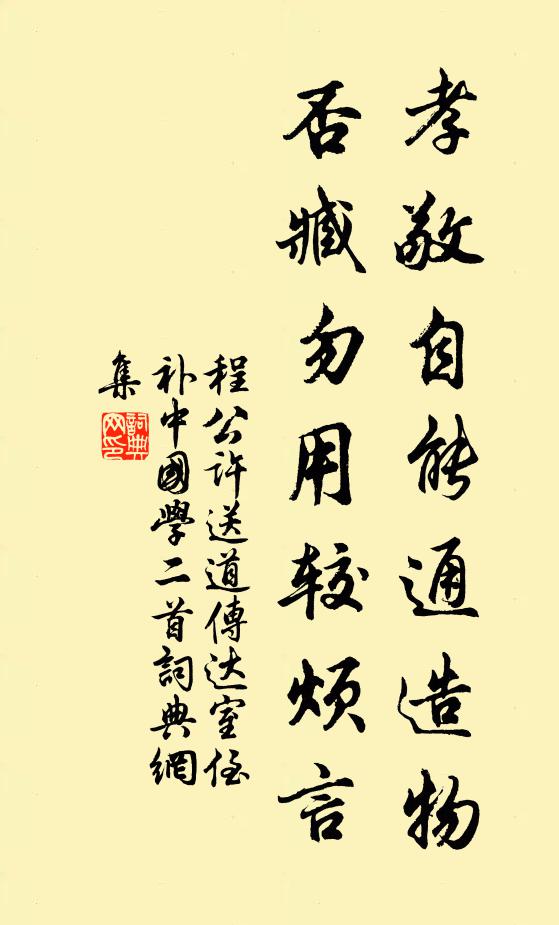 孝敬自能通造物
否臧勿用较烦言
程公许送道傳达室侄
补中國學二首詞典網
集
詞典网印